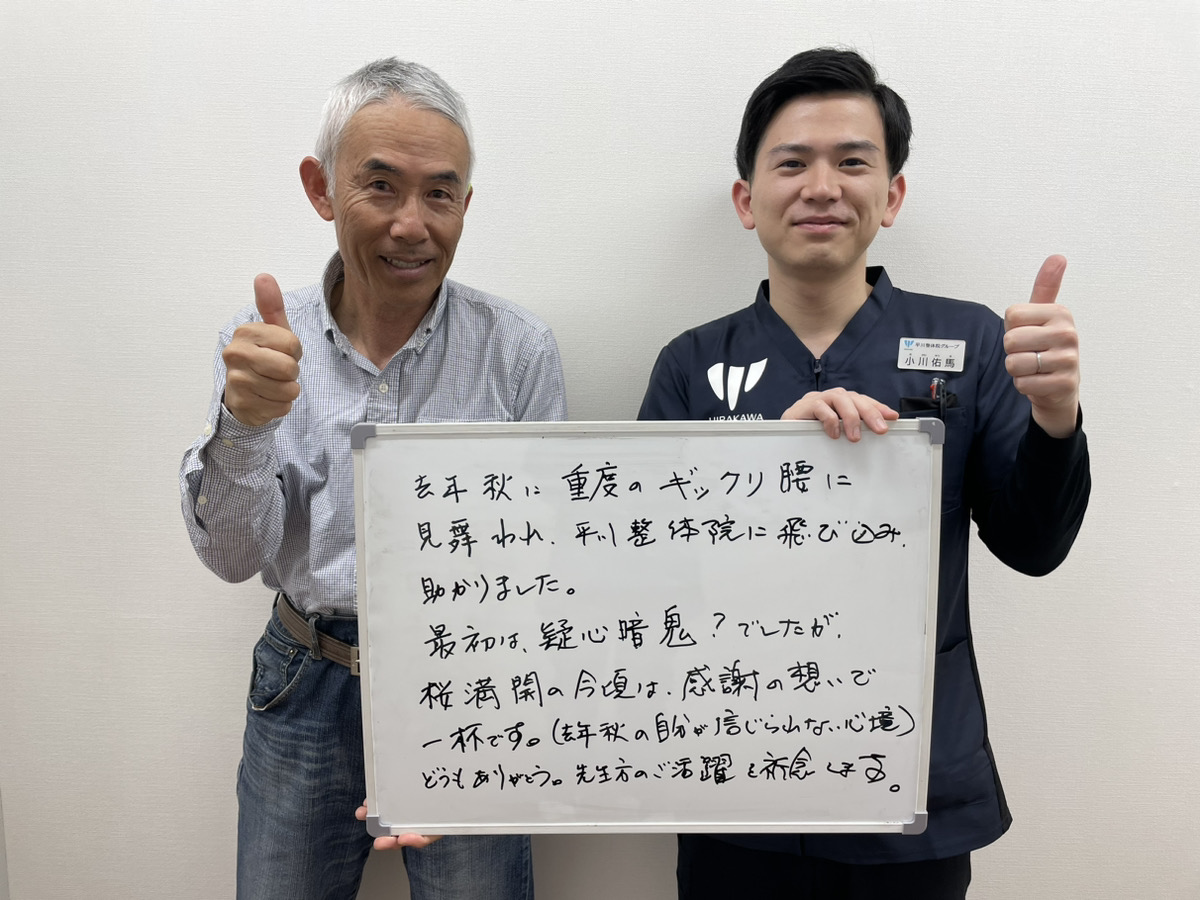 平川整体院グループ
小川佑馬
HIRAKAWA
去年秋に重度のギックリ腰に
見舞われ、平川整体院に飛び込み、
助かりました。
最初は、疑心暗鬼?でしたが、
桜満開の今頃は、感謝の想いで
一杯です。(去年秋の自分が信じられない心境)
どうもありがとう。先生方のご活躍を祈念します。